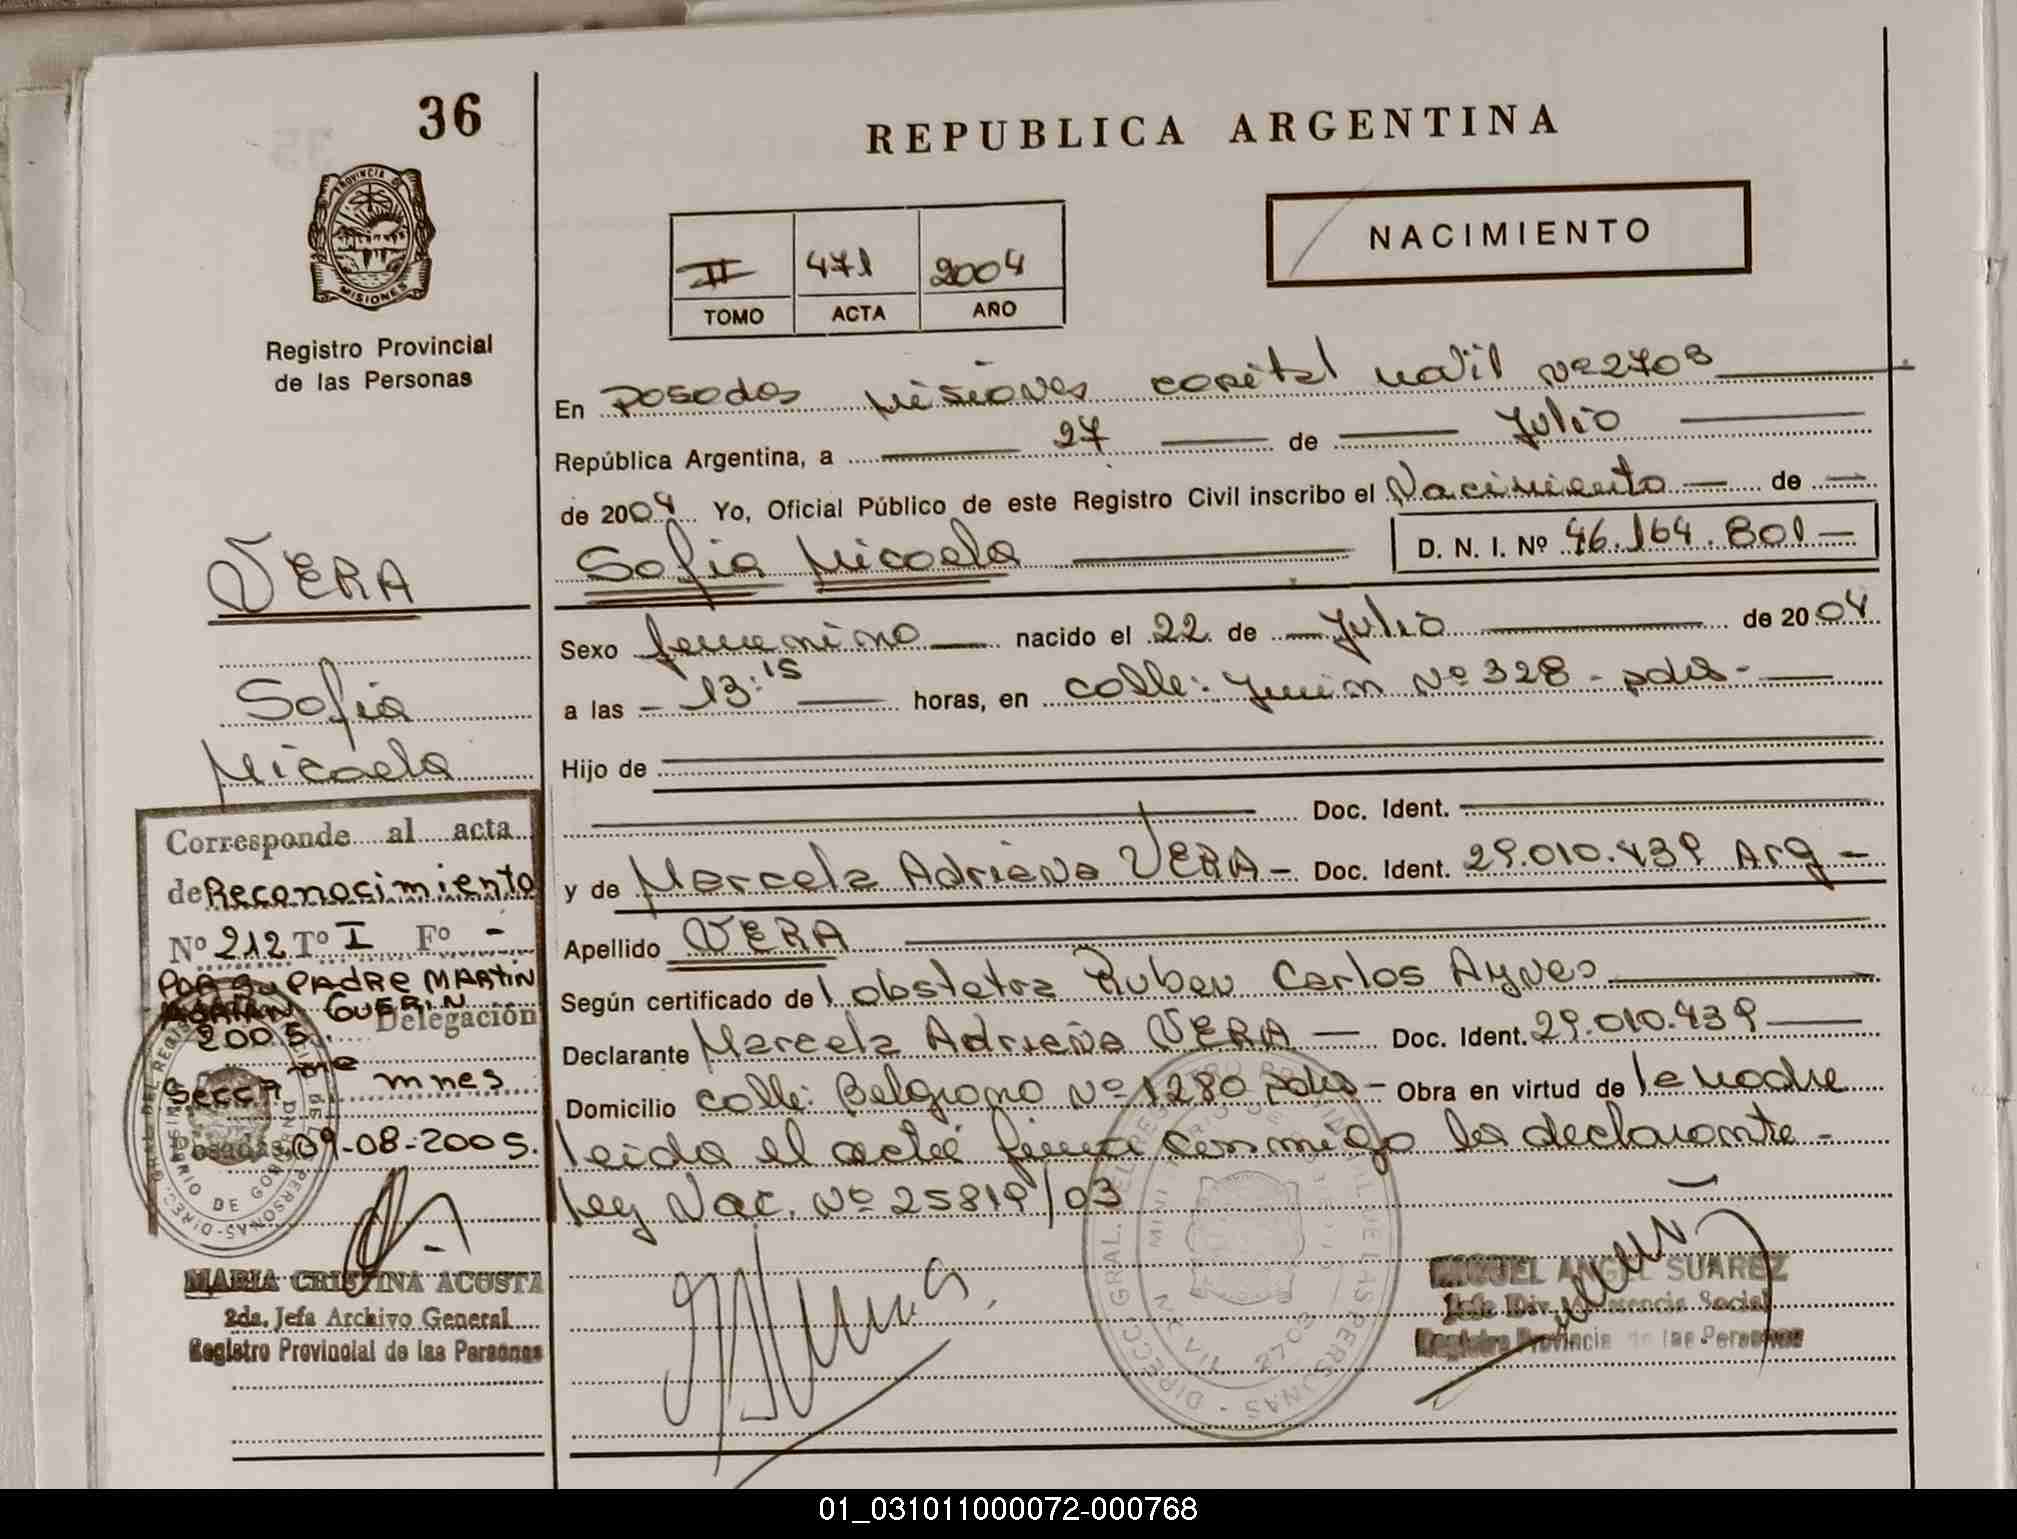 36
REPUBLICA ARGENTINA
PROVINCIA D
MISIONES
Registro Provincial
de las Personas
II 471 2004
TOMO ACTA AÑO
NACIMIENTO
En Posadas Misiones capital Movil Nº 2703
República Argentina, a 27 de Julio
de 2004 Yo, Oficial Público de este Registro Civil inscribo el Nacimiento de
Sofia Micaela D. N. I. Nº 46.164.801
Sexo femenino nacido el 22 de Julio de 2004
a las 13:15 horas, en calle: Junin Nº 328 - pdas -
Hijo de
Doc. Ident.
y de Marcela Adriana VERA - Doc. Ident. 29.010.439 Arg -
Apellido VERA
Según certificado del obstetra Ruben Carlos
Declarante Marcela Adriana VERA - Doc. Ident. 29.010.439
Domicilio calle: Belgrano Nº 1280 pdas - Obra en virtud de la Madre
leida el acta firma conmigo la declarante -
ley Nac. Nº 25819/03
VERA
Sofia
Micaela
Corresponde al acta
de Reconocimiento
Nº 212 Tº I Fº -
POR SU PADRE MARTIN
ADRIAN GUERIN
Delegación
2005.
Secc 1 me mnes
Posadas, 09-08-2005.
MARIA CRISTINA ACOSTA
2da. Jefa Archivo General
Registro Provincial de las Personas
MIGUEL ANGEL SUAREZ
Jefe Div. Asistencia Social
Registro Provincia de las Personas
2703
01_031011000072-000768